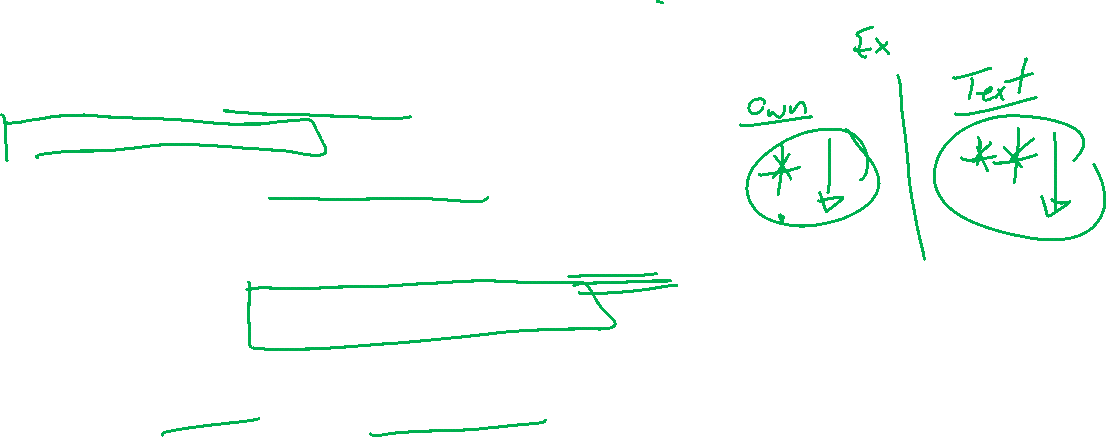 Ex
Own
Text
* ↓
** ↓